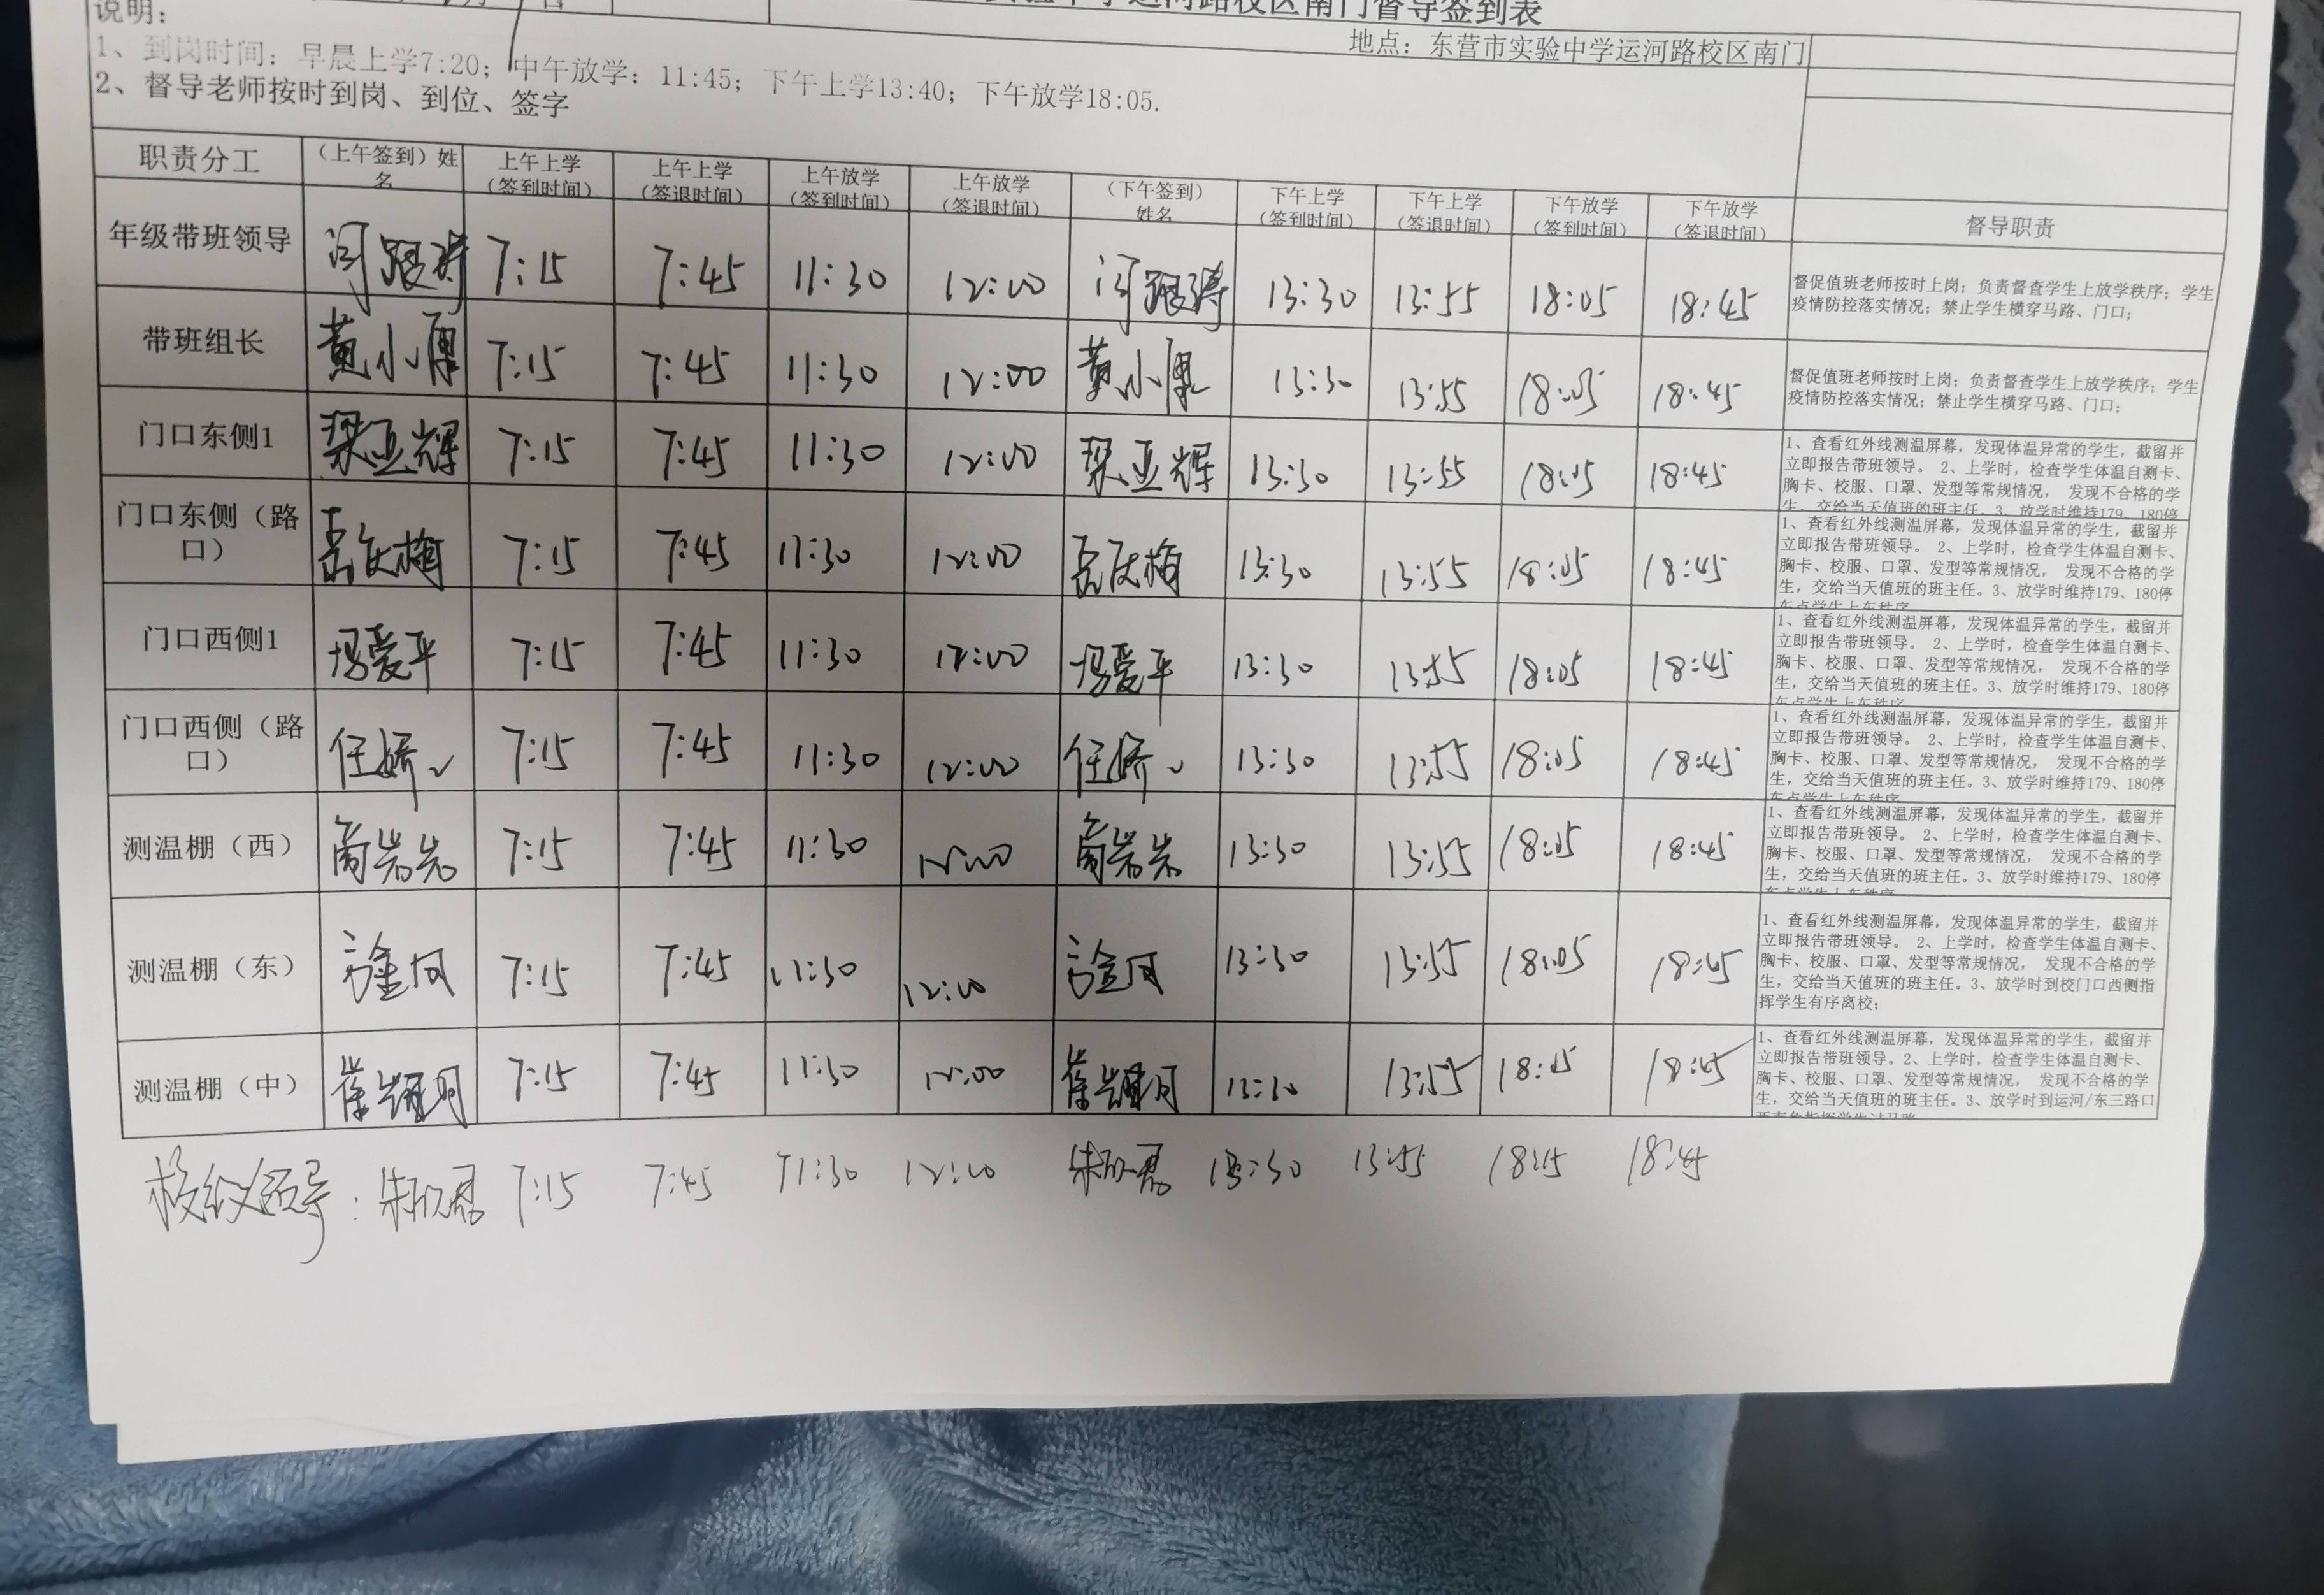 运河路校区南门督导签到表
说明：
地点：东营市实验中学运河路校区南门
1、到岗时间：早晨上学7:20；中午放学：11:45；下午上学13:40；下午放学18:05.
2、督导老师按时到岗、到位、签字
职责分工 （上午签到）姓名 上午上学（签到时间） 上午上学（签退时间） 上午放学（签到时间） 上午放学（签退时间） （下午签到）姓名 下午上学（签到时间） 下午上学（签退时间） 下午放学（签到时间） 下午放学（签退时间） 督导职责
年级带班领导 7:15 7:45 11:30 12:00 13:30 13:55 18:05 18:45
督促值班老师按时上岗；负责督查学生上放学秩序；学生
疫情防控落实情况；禁止学生横穿马路、门口；
带班组长 黄小厚 7:15 7:45 11:30 12:00 黄小厚 13:30 13:55 18:05 18:45
督促值班老师按时上岗；负责督查学生上放学秩序；学生
疫情防控落实情况；禁止学生横穿马路、门口；
门口东侧1 梁亚辉 7:15 7:45 11:30 12:00 梁亚辉 13:30 13:55 18:05 18:45
1、查看红外线测温屏幕，发现体温异常的学生，截留并
立即报告带班领导。 2、上学时，检查学生体温自测卡、
胸卡、校服、口罩、发型等常规情况， 发现不合格的学
生，交给当天值班的班主任。3、放学时维持179、180停
门口东侧（路口） 岳庆梅 7:15 7:45 11:30 12:00 岳庆梅 13:30 13:55 18:05 18:45
1、查看红外线测温屏幕，发现体温异常的学生，截留并
立即报告带班领导。 2、上学时，检查学生体温自测卡、
胸卡、校服、口罩、发型等常规情况， 发现不合格的学
生，交给当天值班的班主任。3、放学时维持179、180停
车点学生上车秩序
门口西侧1 冯爱平 7:15 7:45 11:30 12:00 冯爱平 13:30 13:55 18:05 18:45
1、查看红外线测温屏幕，发现体温异常的学生，截留并
立即报告带班领导。 2、上学时，检查学生体温自测卡、
胸卡、校服、口罩、发型等常规情况， 发现不合格的学
生，交给当天值班的班主任。3、放学时维持179、180停
车点学生上车秩序
门口西侧（路口） 任娇 7:15 7:45 11:30 12:00 任娇 13:30 13:55 18:05 18:45
1、查看红外线测温屏幕，发现体温异常的学生，截留并
立即报告带班领导。 2、上学时，检查学生体温自测卡、
胸卡、校服、口罩、发型等常规情况， 发现不合格的学
生，交给当天值班的班主任。3、放学时维持179、180停
车点学生上车秩序
测温棚（西） 7:15 7:45 11:30 12:00 13:30 13:55 18:05 18:45
1、查看红外线测温屏幕，发现体温异常的学生，截留并
立即报告带班领导。 2、上学时，检查学生体温自测卡、
胸卡、校服、口罩、发型等常规情况， 发现不合格的学
生，交给当天值班的班主任。3、放学时维持179、180停
车点学生上车秩序
测温棚（东） 7:15 7:45 11:30 12:00 13:30 13:55 18:05 18:45
1、查看红外线测温屏幕，发现体温异常的学生，截留并
立即报告带班领导。 2、上学时，检查学生体温自测卡、
胸卡、校服、口罩、发型等常规情况， 发现不合格的学
生，交给当天值班的班主任。3、放学时到校门口西侧指
挥学生有序离校；
测温棚（中） 7:15 7:45 11:30 12:00 13:30 13:55 18:05 18:45
1、查看红外线测温屏幕，发现体温异常的学生，截留并
立即报告带班领导。2、上学时，检查学生体温自测卡、
胸卡、校服、口罩、发型等常规情况， 发现不合格的学
生，交给当天值班的班主任。3、放学时到运河/东三路口
校级领导：7:15 7:45 11:30 12:00 13:30 13:55 18:15 18:45